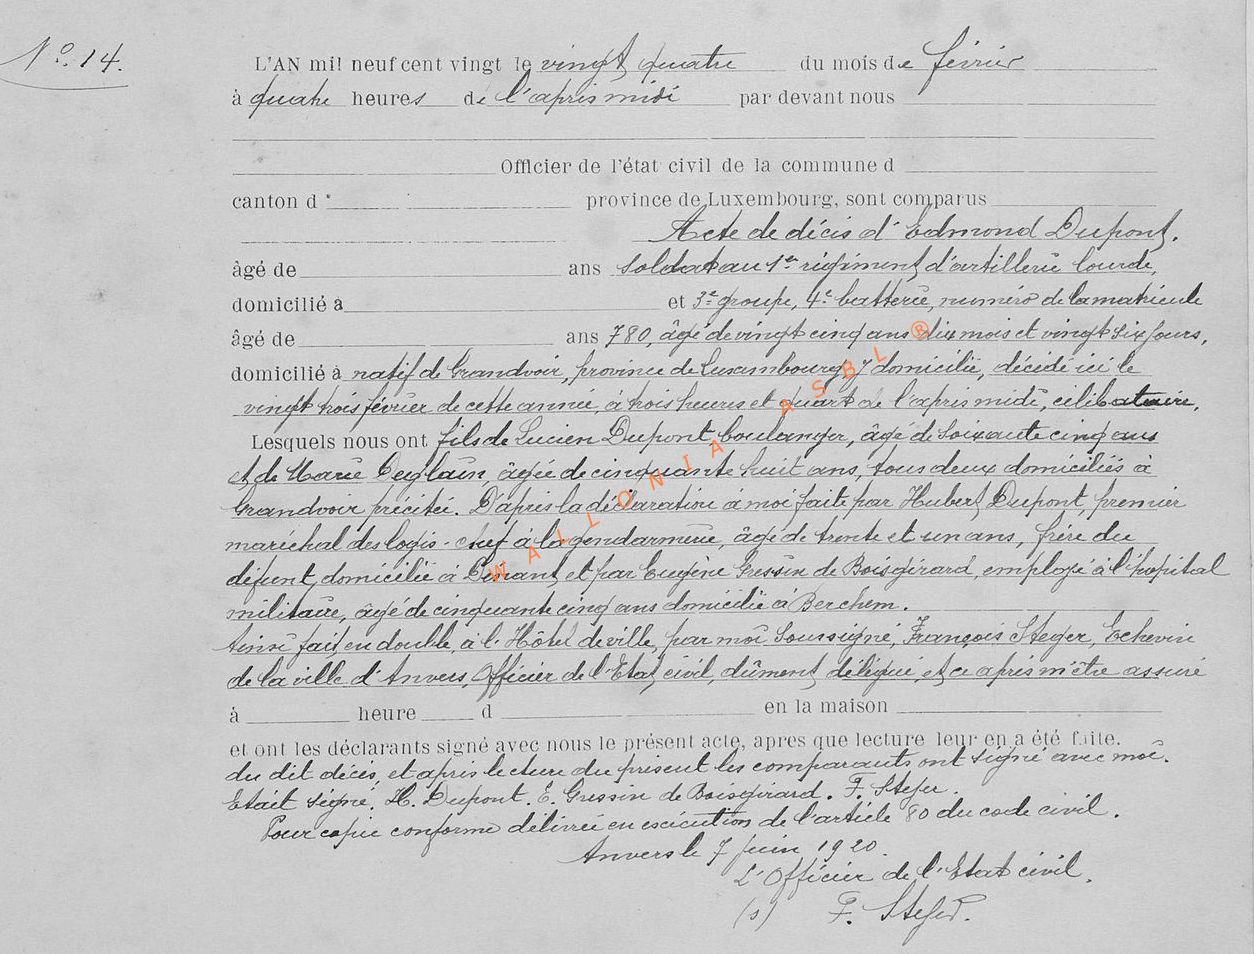 N° 14.
L'AN mil neuf cent vingt le vingt quatre du mois de février
à quatre heures de l'après midi par devant nous
Officier de l'état civil de la commune d
canton d province de Luxembourg, sont comparus
Acte de décis d'Edmond Dupont.
âgé de ans soldat au 1er régiment d'artillerie lourde,
domicilié à et 3e groupe, 4e batterie, numéro de la matricule
âgé de ans 780, âgé de vingt cinq ans dix mois et vingt six jours,
domicilié à natif de Grandvoir, province de Luxembourg y domicilié, décédé ici le
vingt trois février de cette année, à trois heures et quart de l'après midi, célibataire,
Lesquels nous ont fils de Lucien Dupont, boulanger, âgé de soixante cinq ans
et de Marie, âgée de cinquante huit ans, tous deux domiciliés à
Grandvoir précitée. D'après la déclaration a moi faite par Hubert Dupont, premier
maréchal des logis-chef à la gendarmerie, âgé de trente et un ans, frère du
défunt, domicilié à Dinant, et par Eugène Gressin de Boisgirard, employé à l'hôpital
militaire, âgé de cinquante cinq ans domicilié à Berchem.
Ainsi fait, en double, à l'Hôtel de ville, par moi soussigné, François Steger, Echevin
de la ville d'Anvers, Officier de l'Etat civil, dûment délégué, et ce après m'être assuré
à heure d en la maison
et ont les déclarants signé avec nous le présent acte, apres que lecture leur en a été faite.
du dit décès, et après lecture du présent les comparants ont signé avec moi.
Etait signé, H. Dupont. E. Gressin de Boisgirard. F. Steger.
Pour copie conforme délivrée en exécution de l'article 80 du code civil.
Anvers le 7 juin 1920.
L'Officier de l'Etat civil.
(s) F. Steger.
WALLONIA ASBL ®